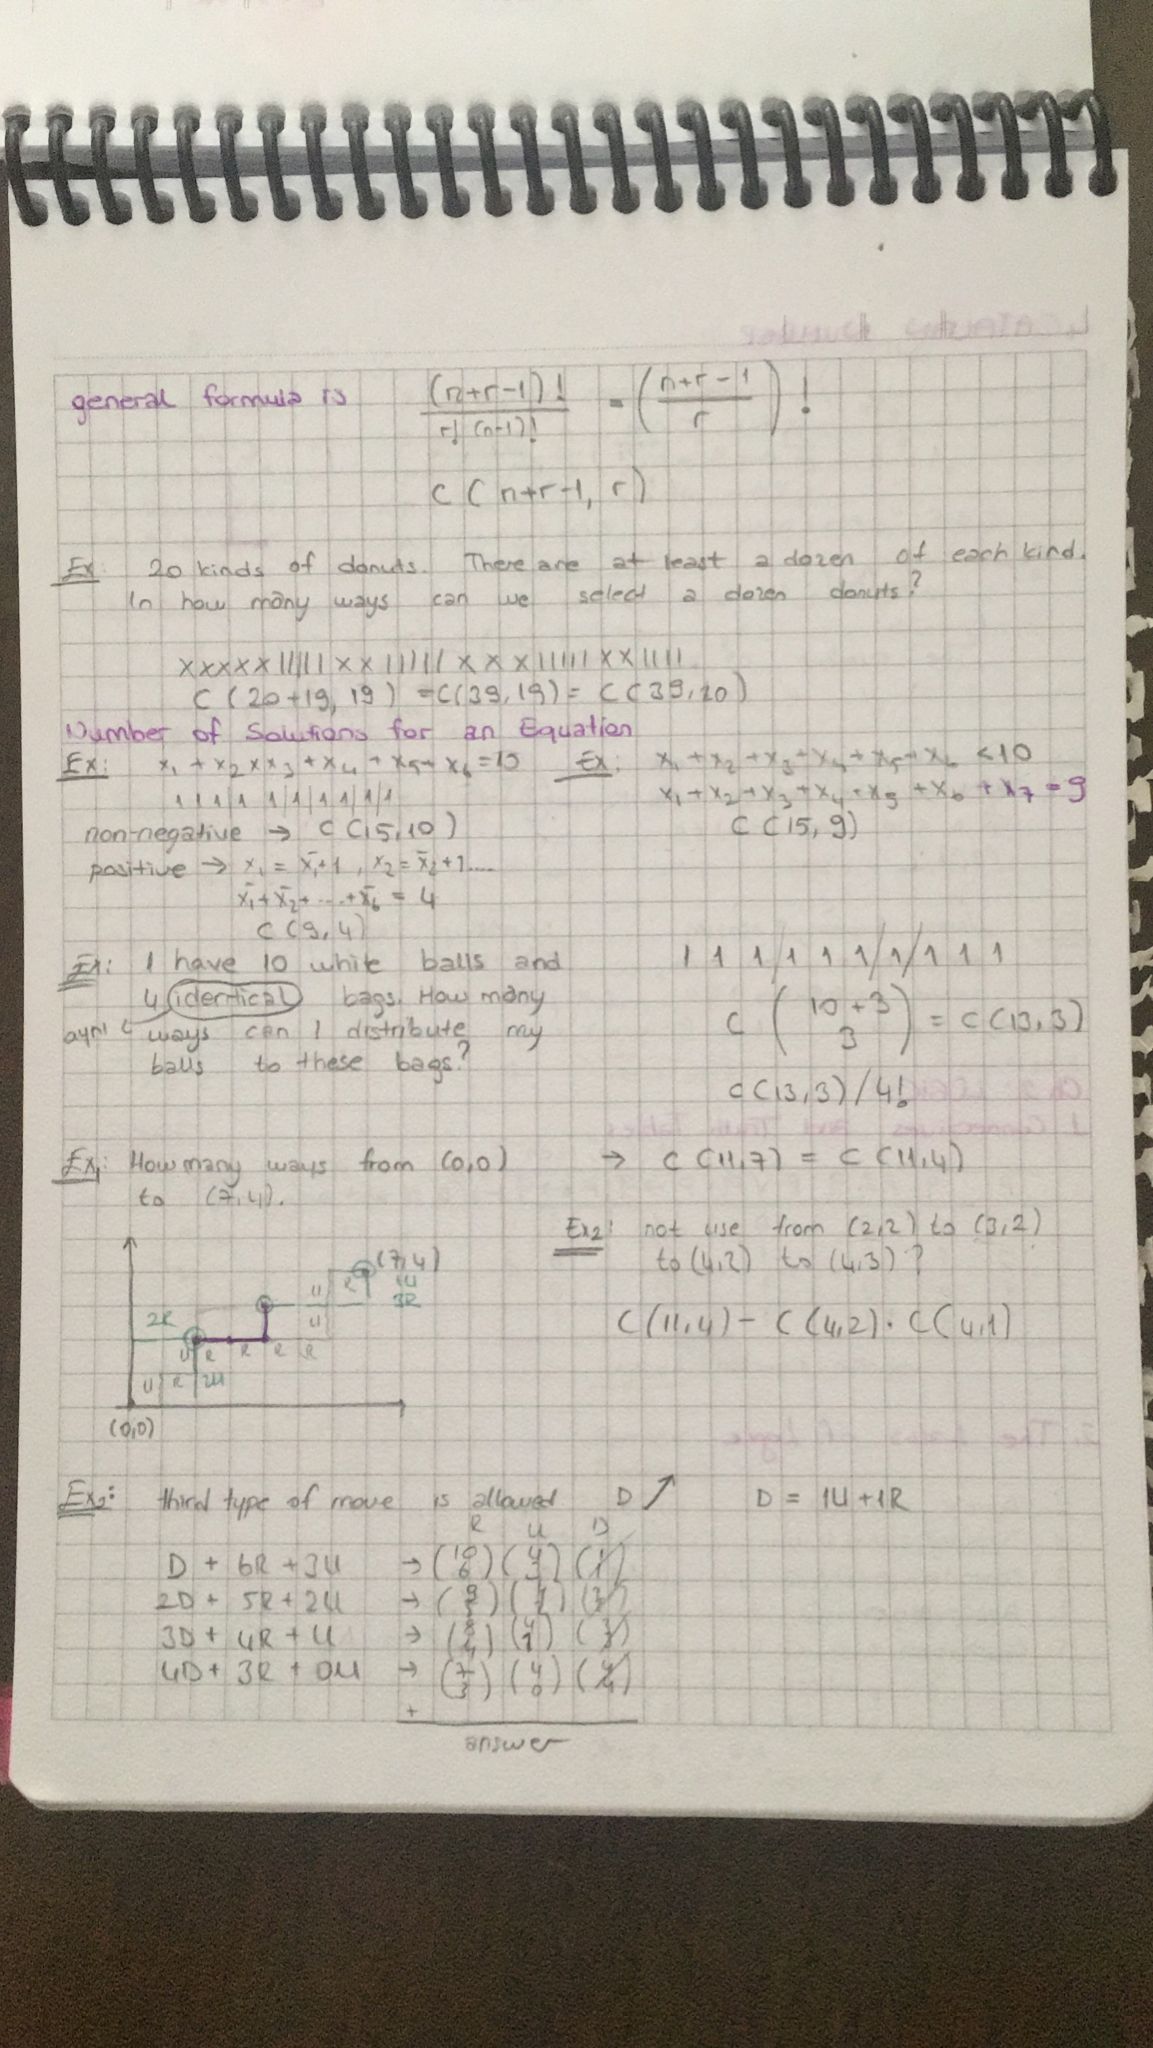 general formula is (n+r-1)! / r! (n-1)! = (n+r-1 / r)!
C (n+r-1, r)
Ex: 20 kinds of donuts. There are at least a dozen of each kind.
In how many ways can we select a dozen donuts?
xxxxx|||||xx||||||xxx|||||xx||||
C (20+19, 19) = C(39,19) = C(39,20)
Number of Solutions for an Equation
Ex: x₁ + x₂ x x₃ + x₄ + x₅ + x₆ = 10
non-negative → C(15,10)
positive → x₁ = x̄₁+1, x₂ = x̄₂+1....
x̄₁+x̄₂+....+x̄₆ = 4
C(9,4)
Ex: x₁ + x₂ + x₃ + x₄ + x₅ + x₆ < 10
x₁ + x₂ + x₃ + x₄ + x₅ + x₆ + x₇ = 9
C(15,9)
Ex: I have 10 white balls and
4 identical bags. How many
aynı ways can I distribute my
balls to these bags?
1 1 1/1 1 1/1/1 1 1
C (10+3 / 3) = C(13,3)
C(13,3)/4!
Ex1: How many ways from (0,0)
to (7,4).
→ C(11,7) = C(11,4)
Ex2: not use from (2,2) to (3,2)
to (4,2) to (4,3)?
C(11,4) - C(4,2) . C(4,1)
(7,4)
U R 1U
3R
2R U
U R R R R
U R 2U
(0,0)
Ex2: third type of move is allowed D ↗ D = 1U+1R
R U D
D + 6R + 3U → (10 6) (4 3) (1 1)
2D + 5R + 2U → (9 5) (4 2) (2 2)
3D + 4R + U → (8 4) (4 1) (3 3)
4D + 3R + 0U → (7 3) (4 0) (4 4)
+
answer